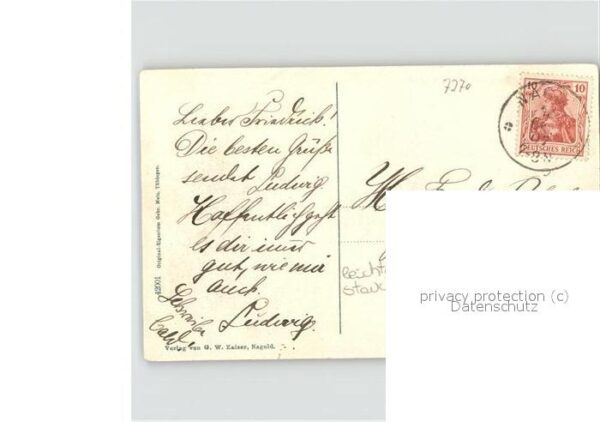 7270
Lieber Friedrich!
Die besten Grüße
sendet Ludwig
Hoffentlich geht
es dir immer
gut, wie mir
auch.
Ludwig.
Schreibe
bald
42001 Original-Eigentum Gebr. Metz, Tübingen.
Verlag von G. W. Zaiser, Nagold.
10
DEUTSCHES REICH
leicht
privacy protection (c)
Datenschutz